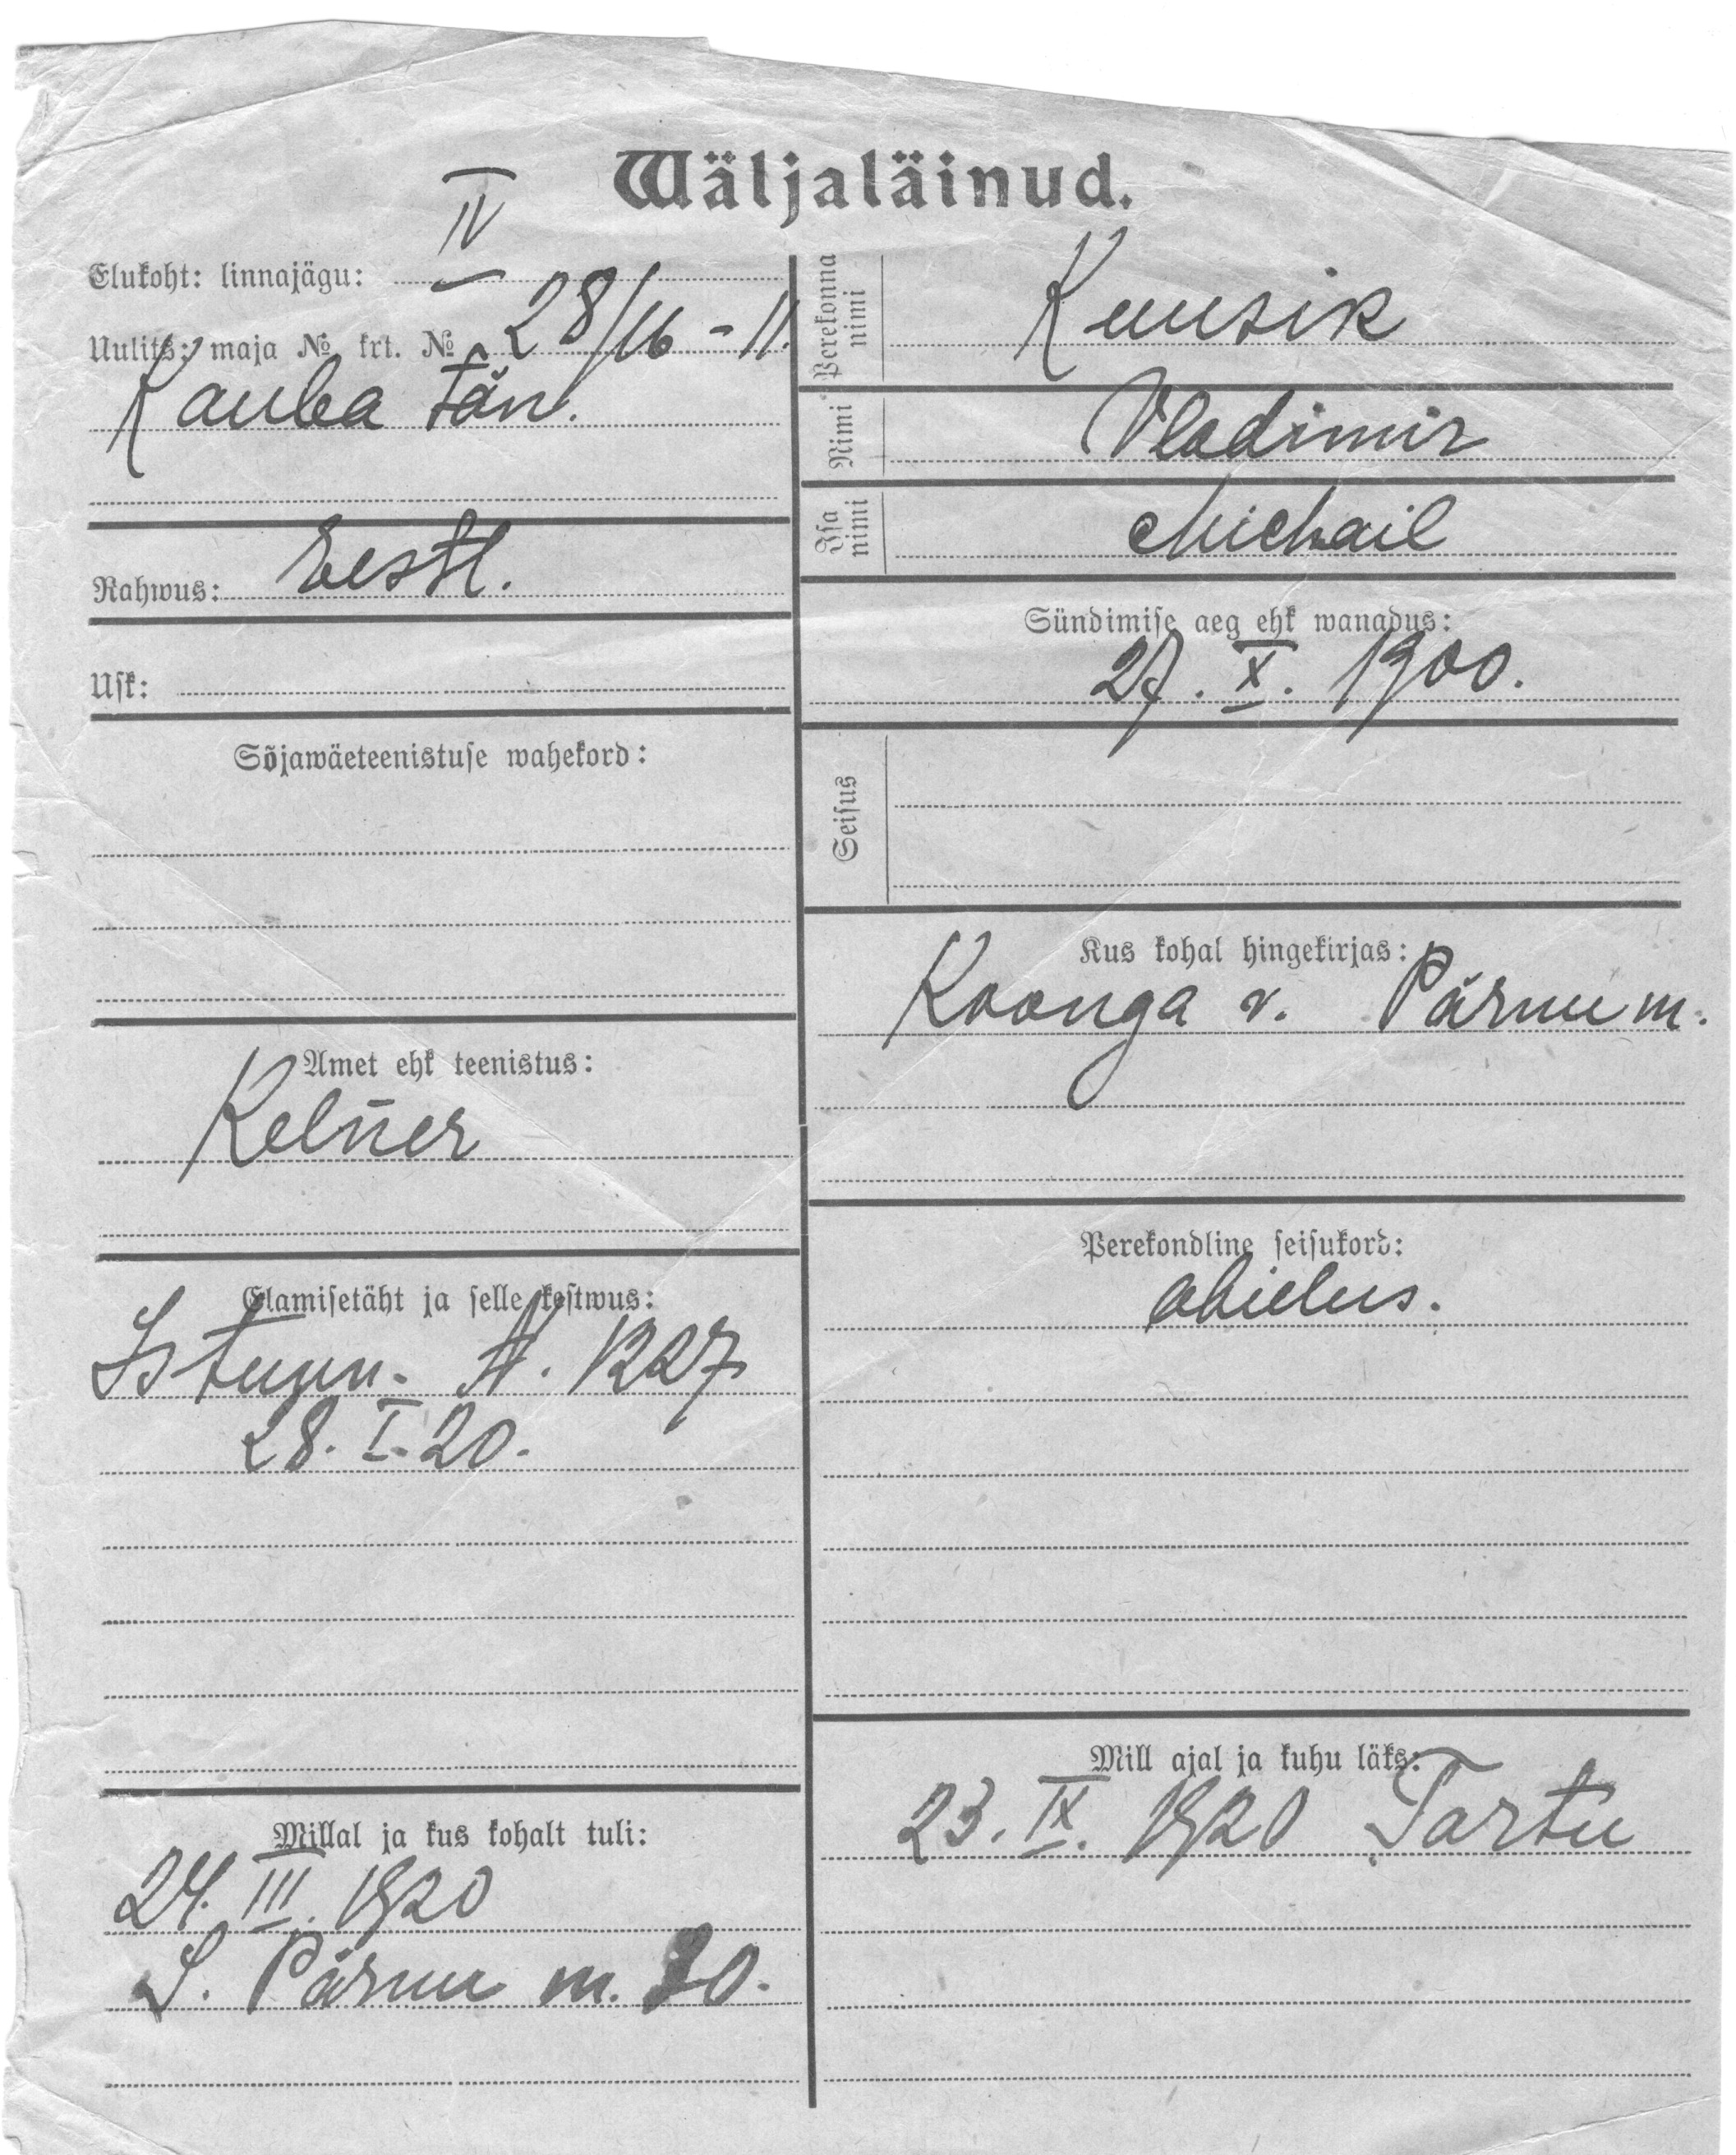 Wäljaläinud.
Elukoht: linnajägu: IV
Uulits: maja № krt. № 28/16 - 11.
Kauba tän.
Rahwus: Eestl.
Usk:
Sõjawäeteenistuse wahekord:
Amet ehk teenistus:
Kelner
Elamisetäht ja selle kestwus:
N. 1227
28. I. 20.
Millal ja kus kohalt tuli:
24. III. 1920
S. Pärnu m. 20.
Perekonna nimi Kuusik
Nimi Vladimir
Isa nimi Michail
Sündimise aeg ehk wanadus:
27. X. 1900.
Seisus
Kus kohal hingekirjas:
Koonga v. Pärnu m.
Perekondline seisukord:
abielus.
Mill ajal ja kuhu läks:
23. IX. 1920 Tartu